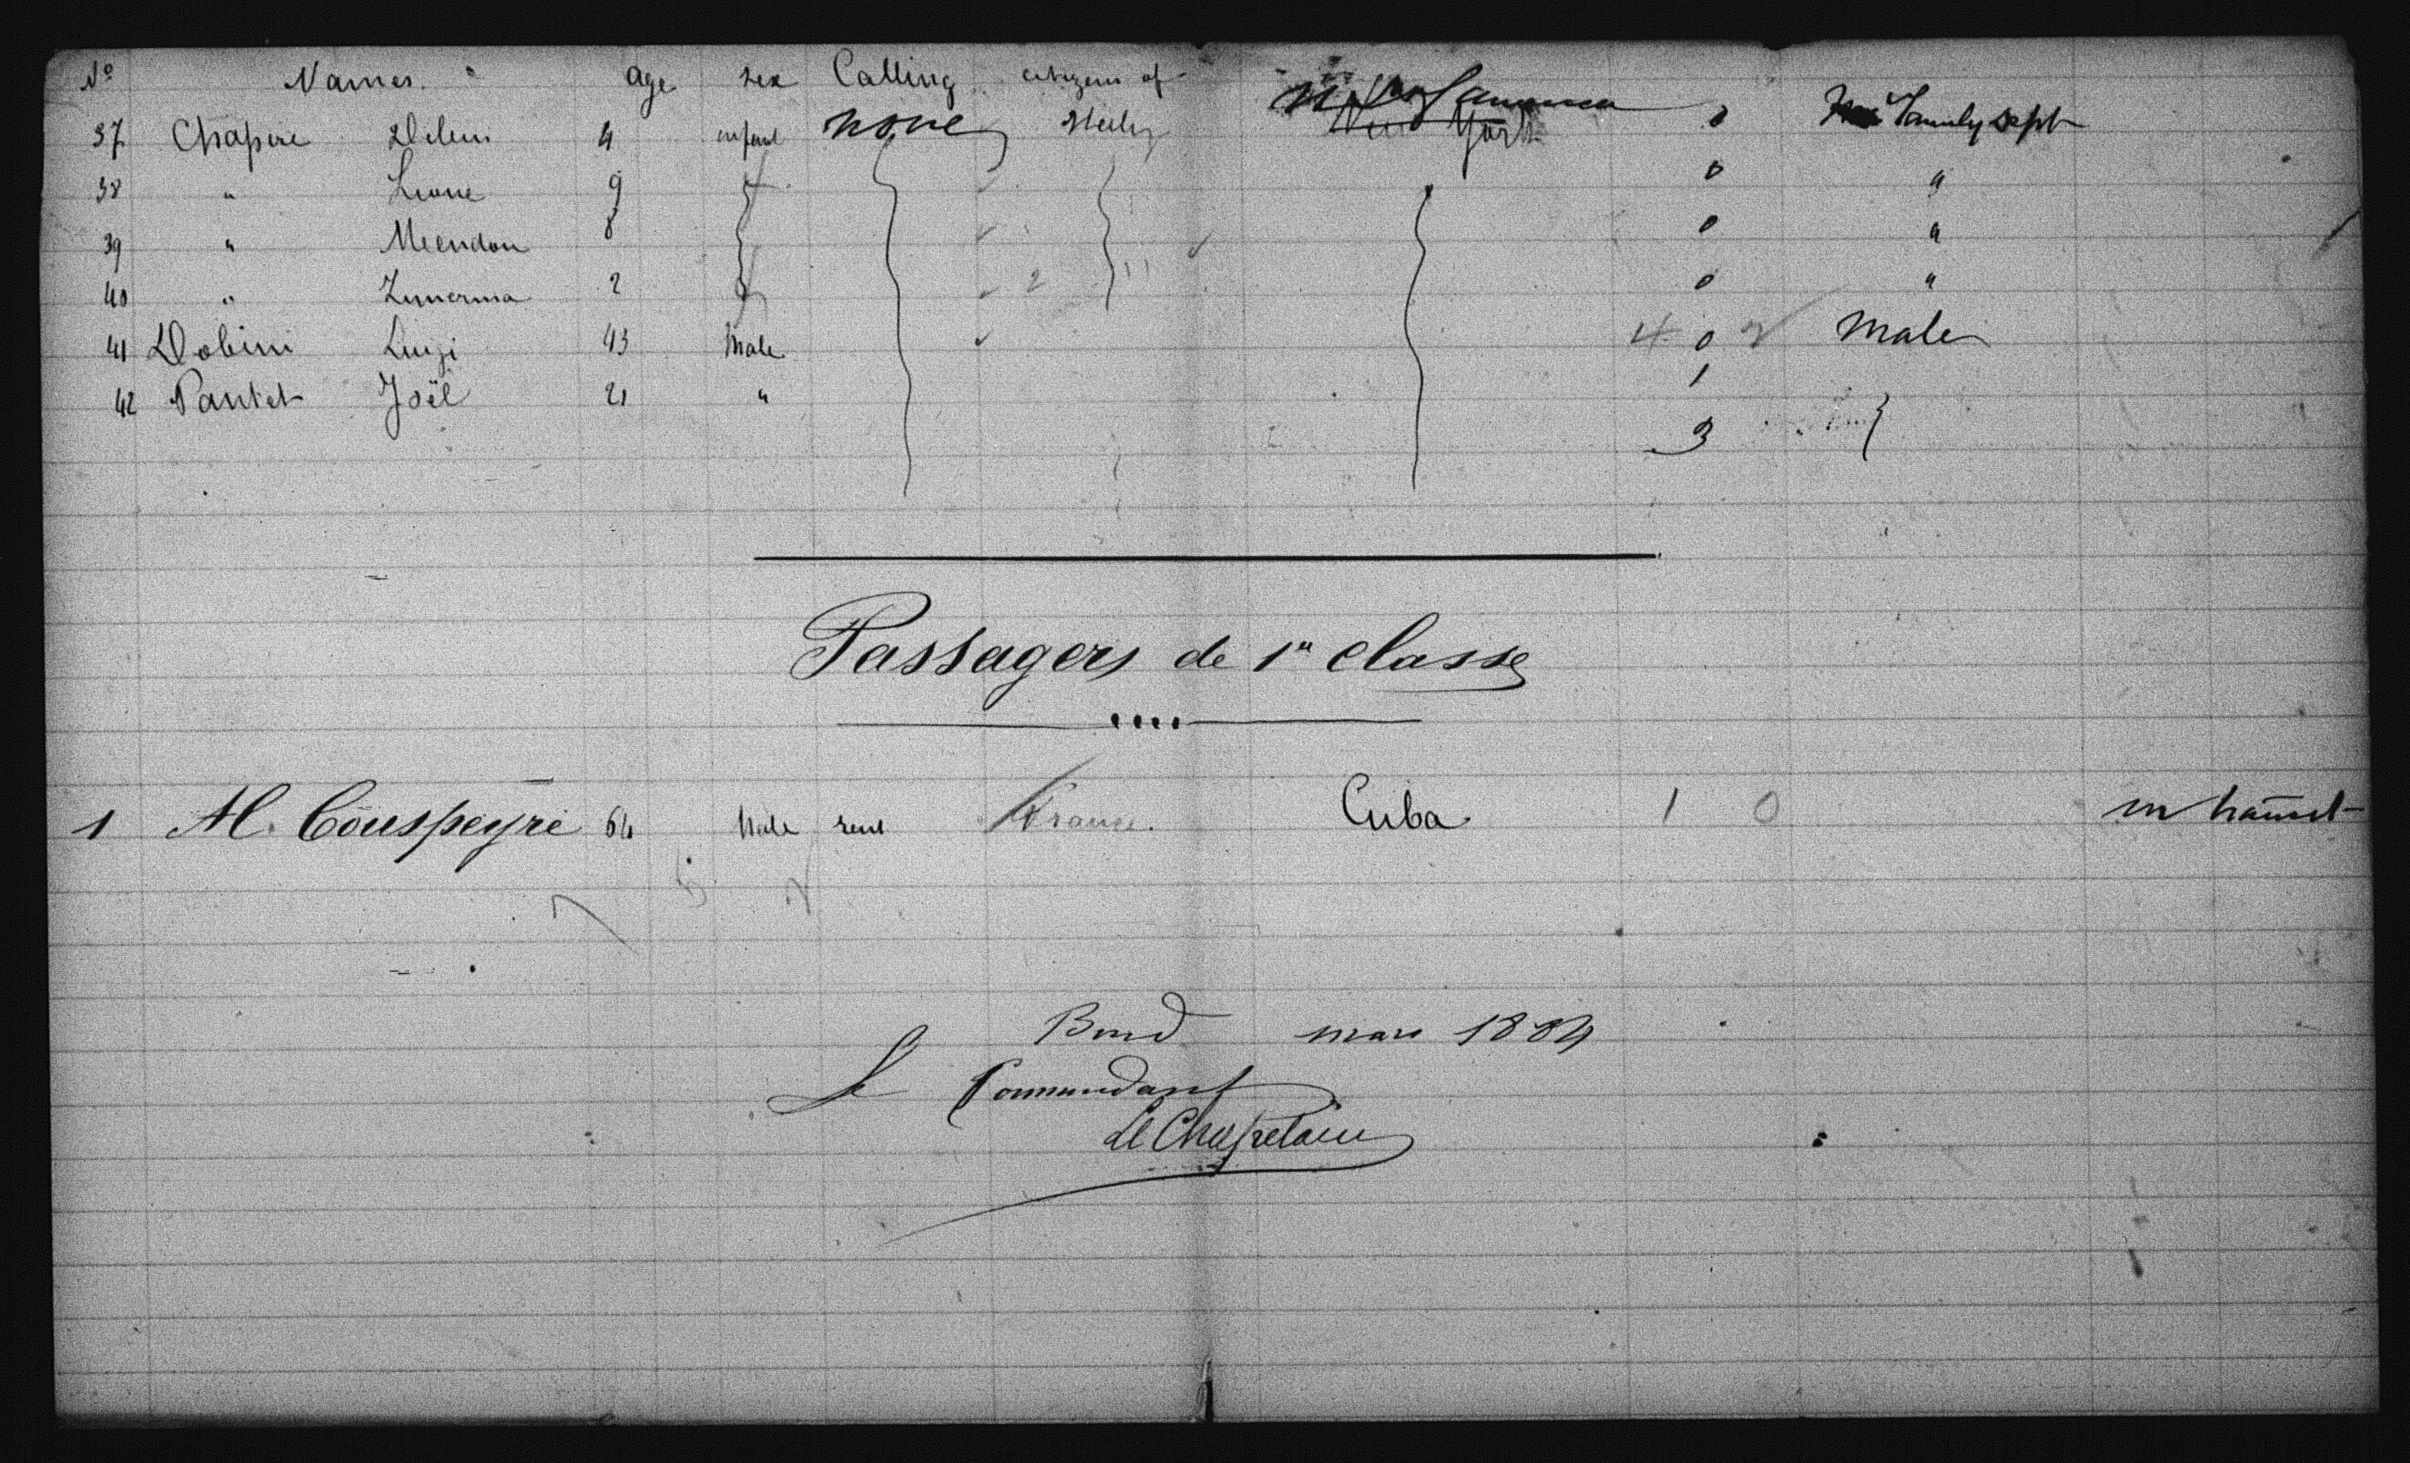 No Names. age sex Calling citizens of
37 Chapere 4 infant none New York 0 Family sept
38 " Leone 9 0 "
39 " Meendon 8 0 "
40 " Zumerma 2 2 0 "
41 Dobini Luigi 43 Male 4 0 Male
42 Pautet Joël 21 " 1
3
Passagers de 1re classe
1 M. Couspeyre 64 Male rent France. Cuba 1 0 in transit
Bord mars 1884
Le Commandant
Le Chapelain